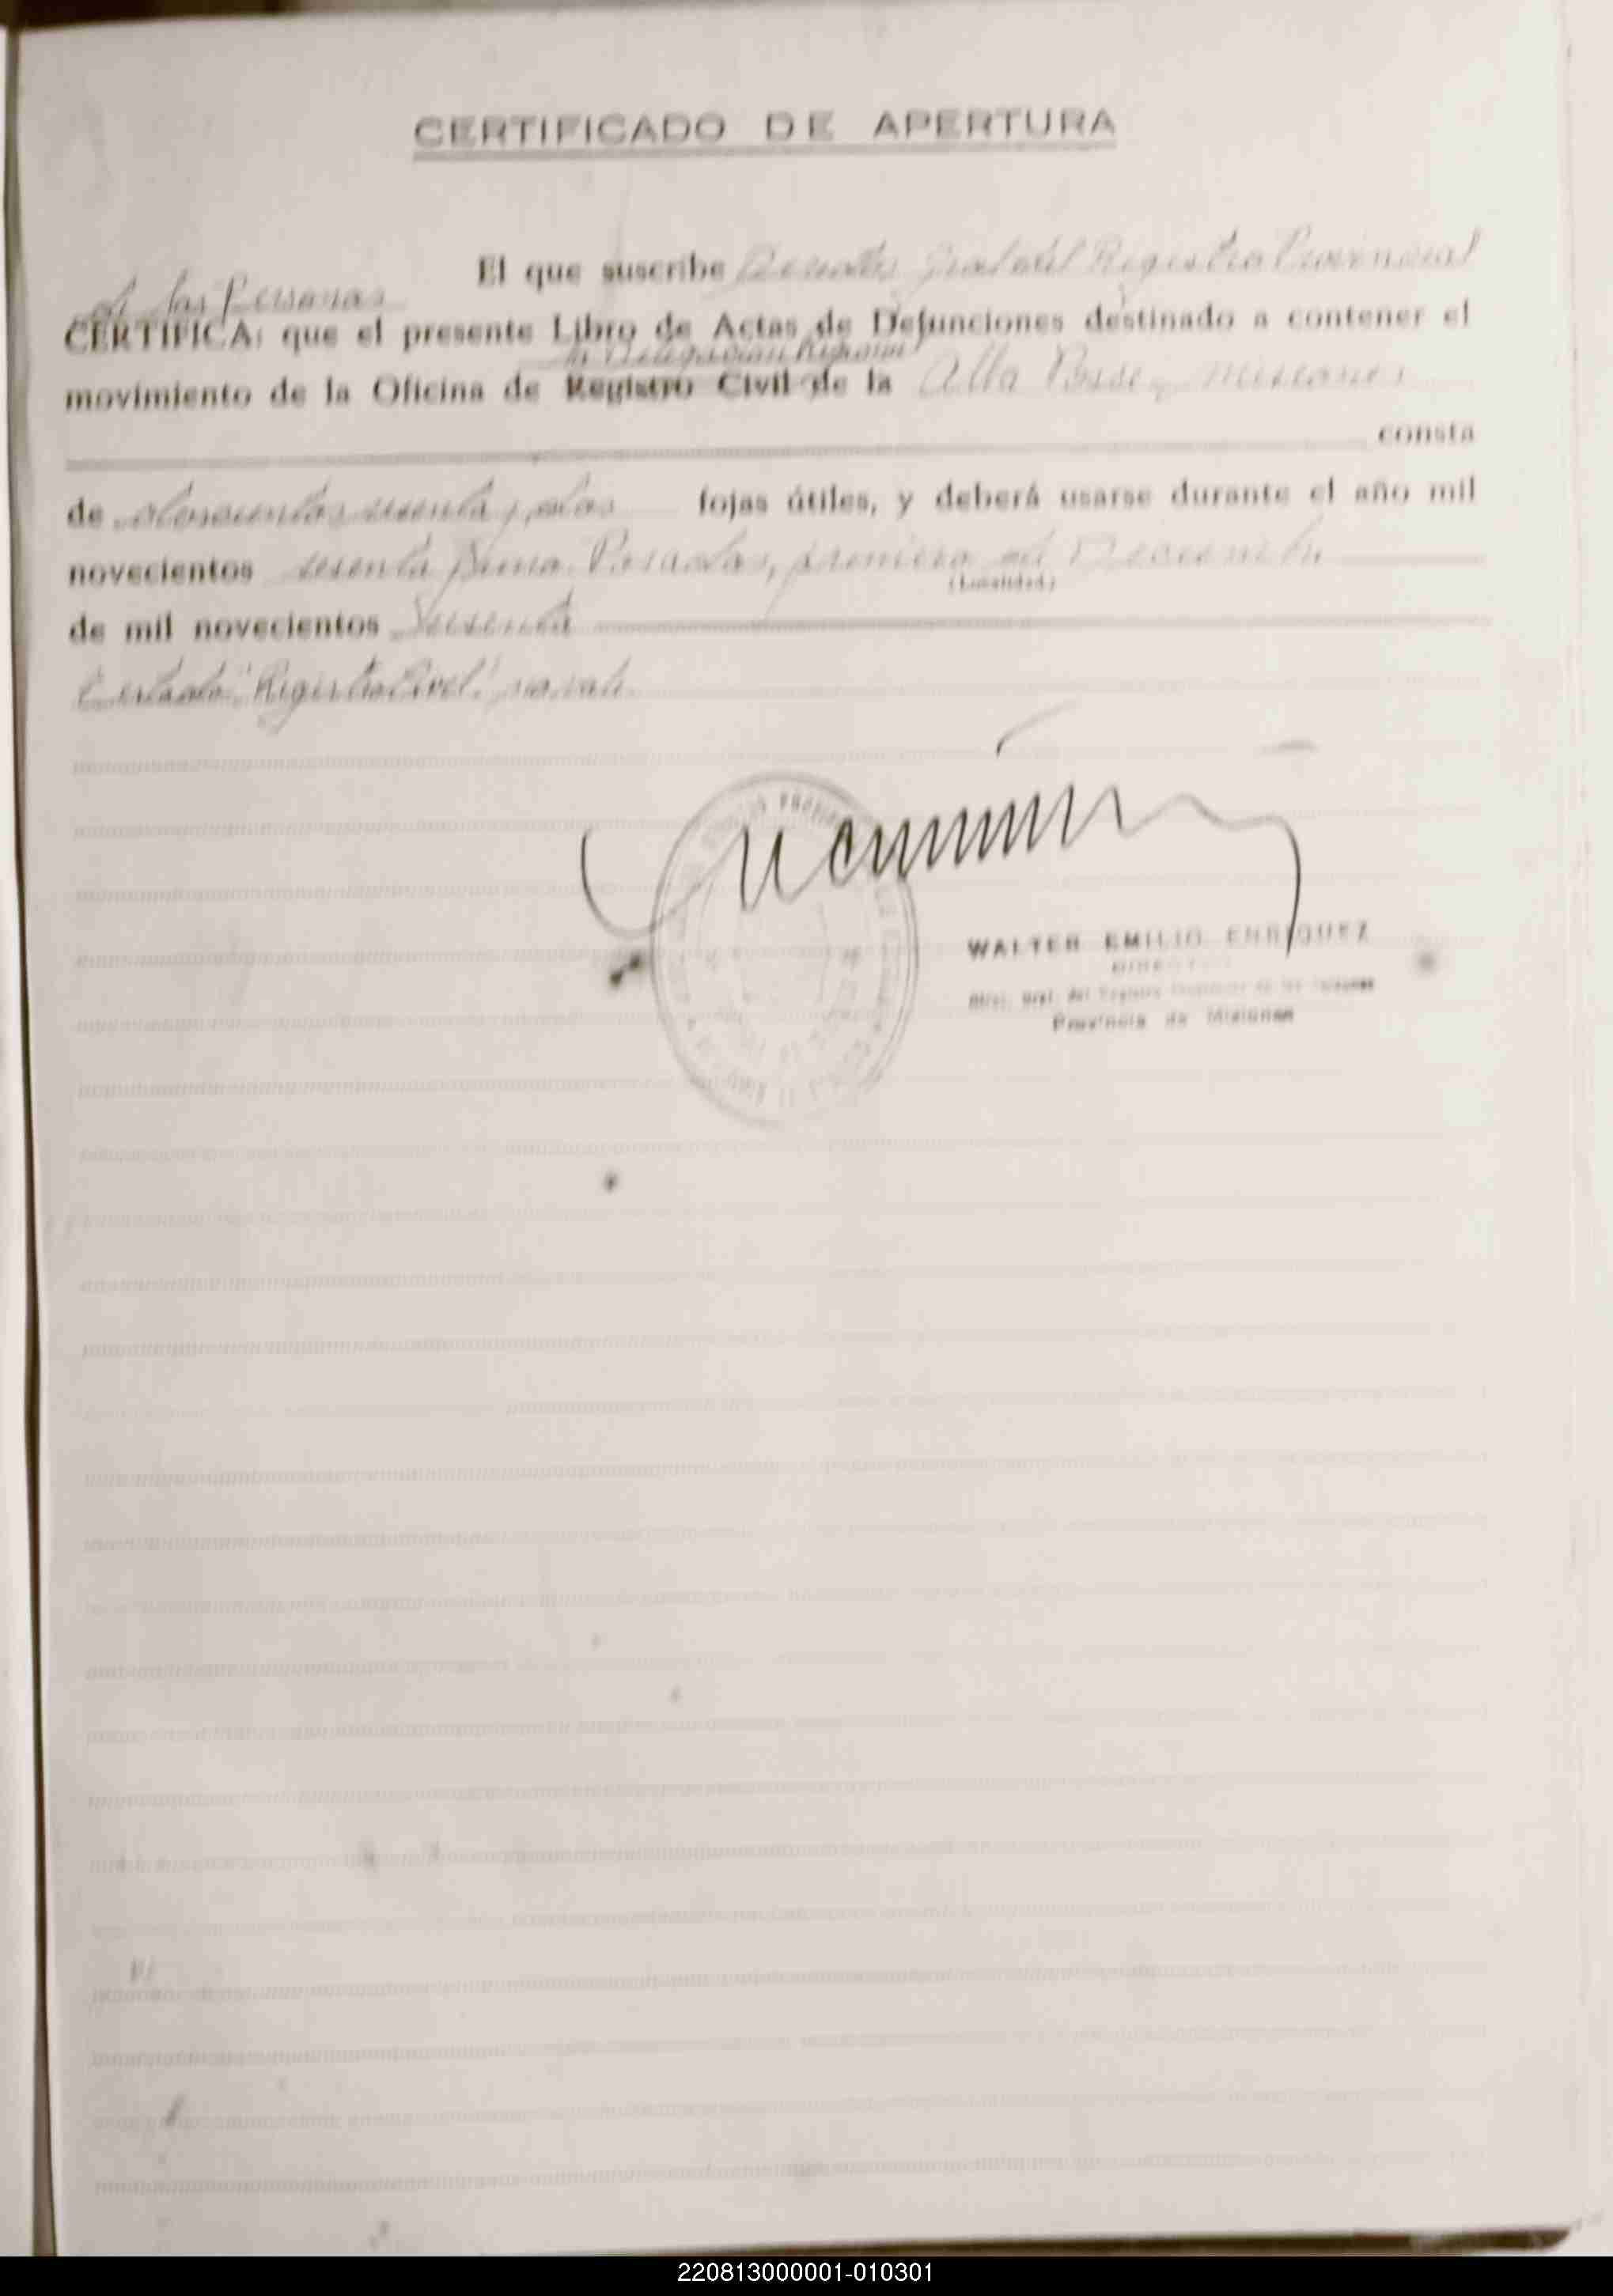 CERTIFICADO DE APERTURA
El que suscribe Director Gral del Registro Provincial
de las Personas
CERTIFICA: que el presente Libro de Actas de Defunciones destinado a contener el
la Delegación
movimiento de la Oficina de Registro Civil de la Misiones
consta
de doscientas sesenta y dos fojas útiles, y deberá usarse durante el año mil
novecientos sesenta y uno. Posadas, primero de Diciembre
(Localidad)
de mil novecientos sesenta
Testado: "Registro Civil" no vale.
WALTER EMILIO ENRIQUEZ
DIRECTOR
Direc. Gral. del Registro Provincial de las Personas
Provincia de Misiones
220813000001-010301